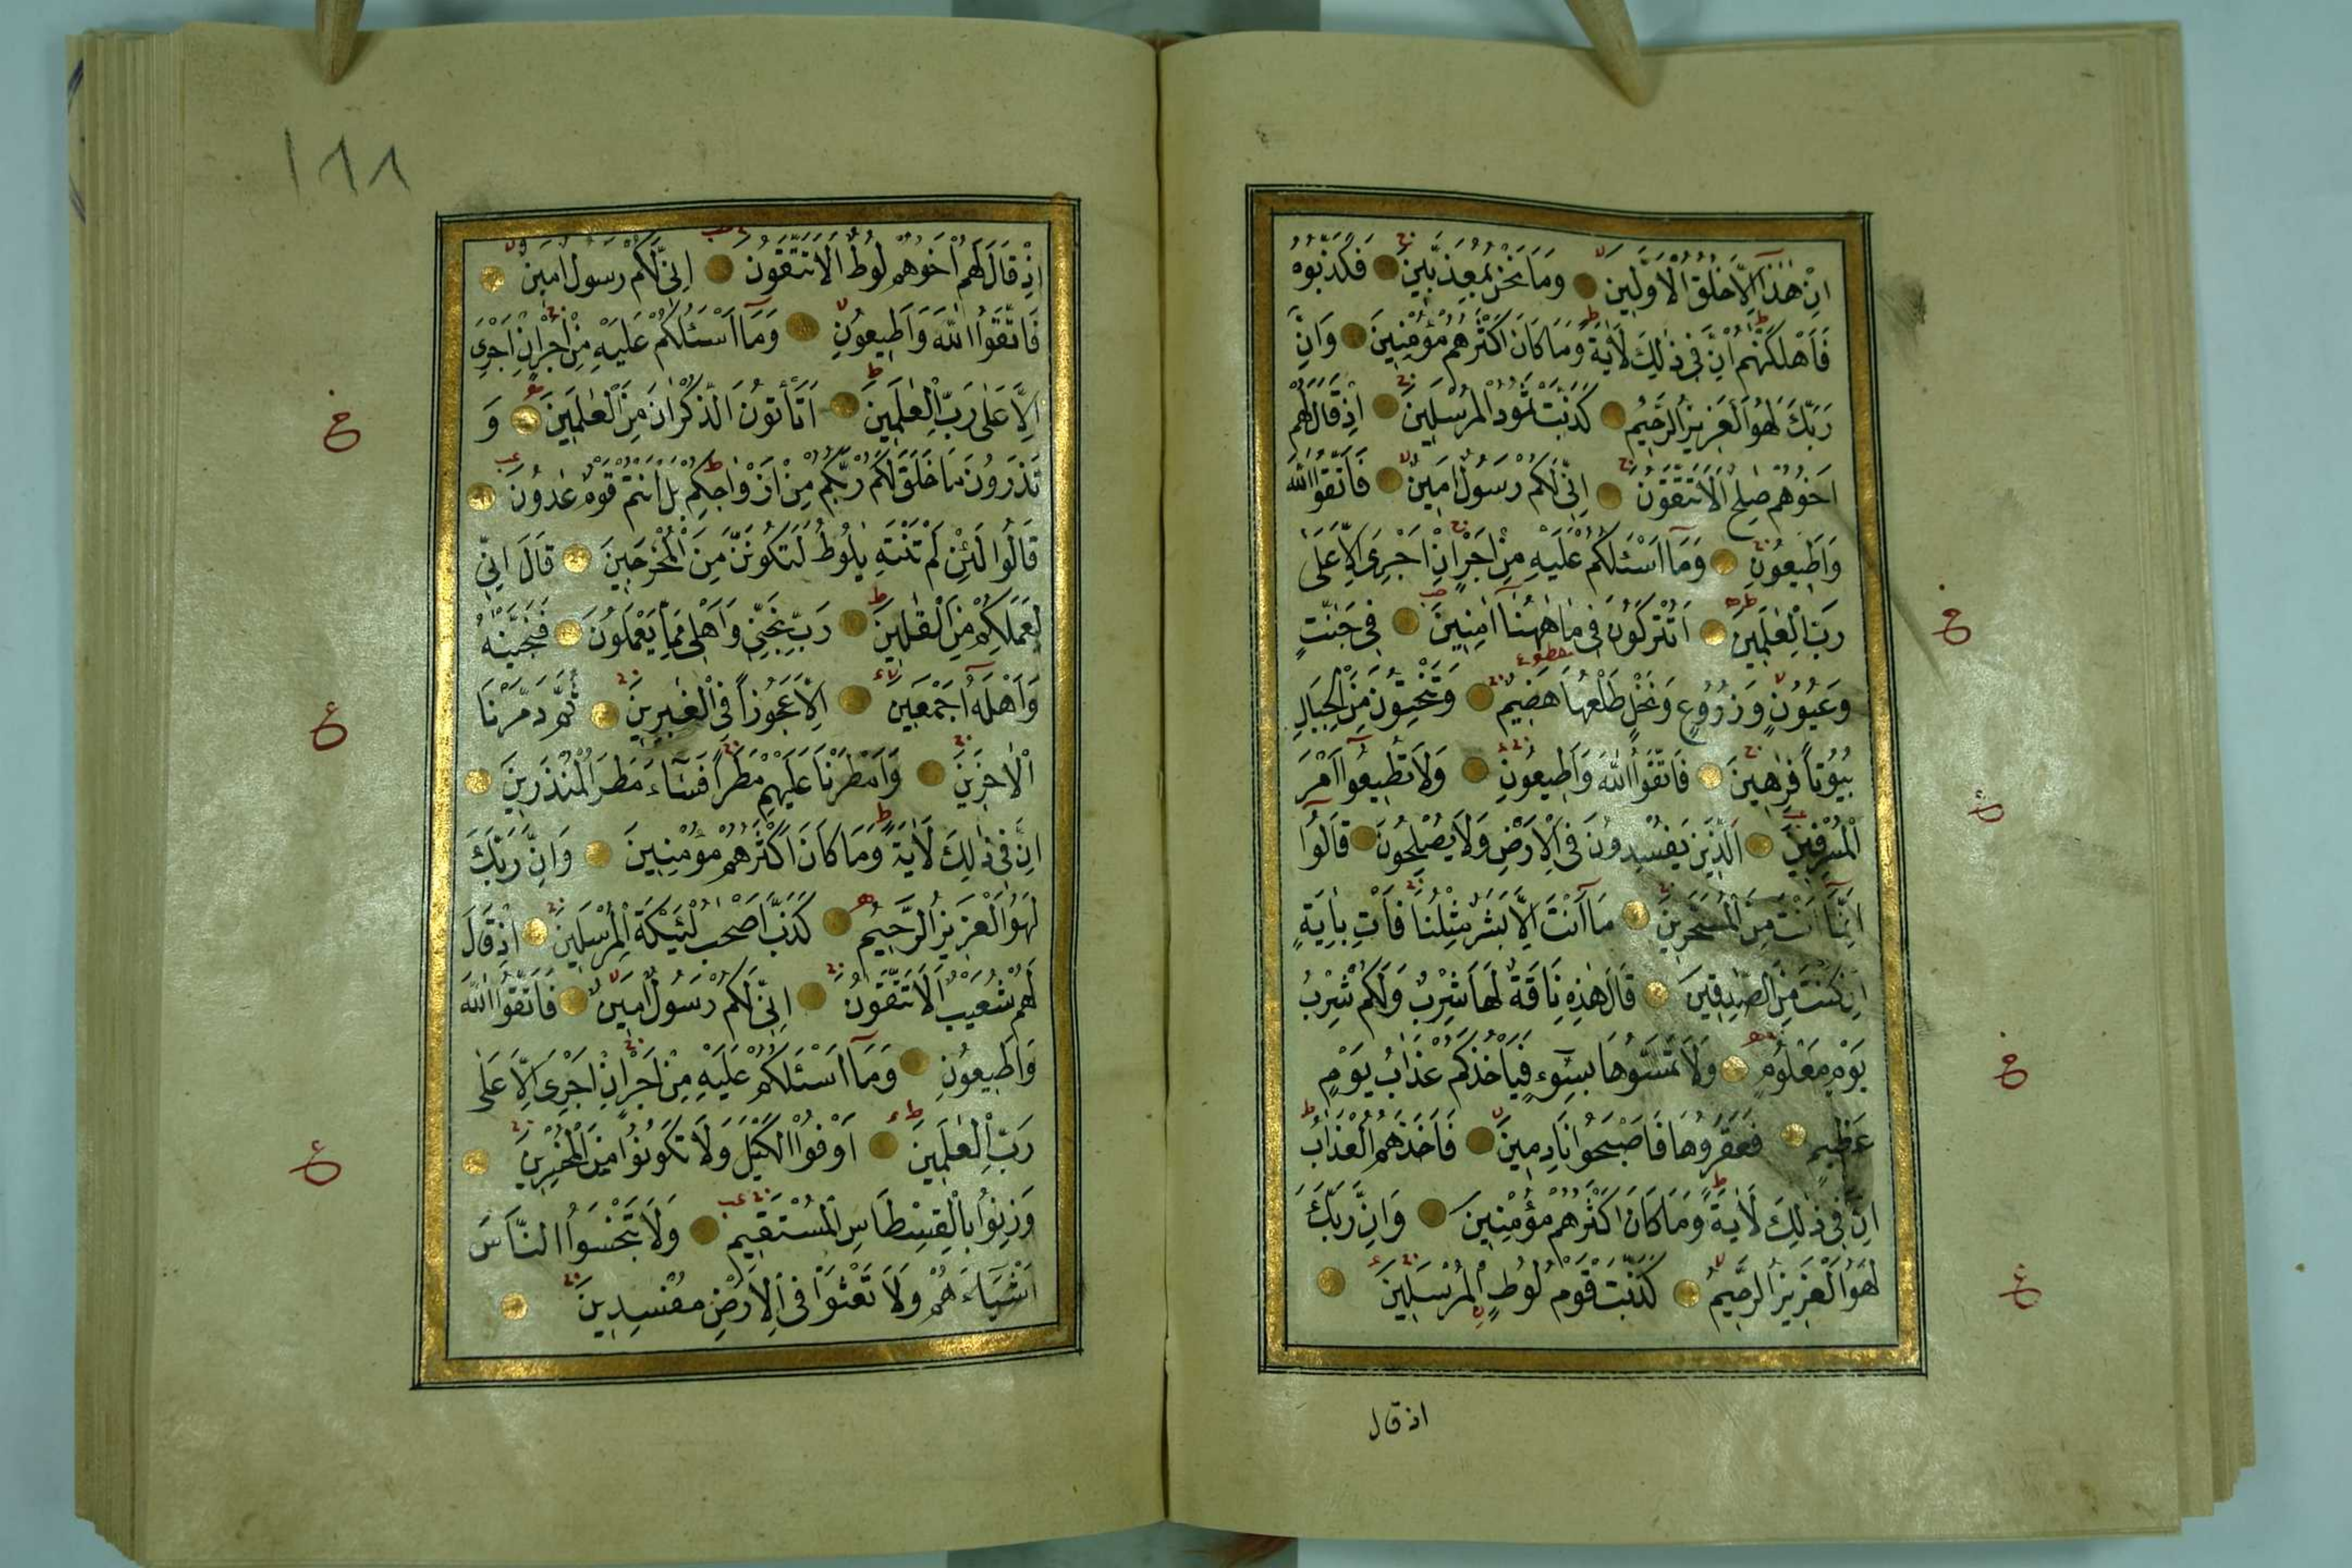 اِنْ هٰذَٓا اِلَّا خُلُقُ الْاَوَّلٖينَ وَمَا نَحْنُ بِمُعَذَّبٖينَ فَكَذَّبُوهُ
فَاَهْلَكْنٰهُمْ اِنَّ فٖى ذٰلِكَ لَاٰيَةً وَمَا كَانَ اَكْثَرُهُمْ مُؤْمِنٖينَ وَاِنَّ
رَبَّكَ لَهُوَ الْعَزٖيزُ الرَّحٖيمُ كَذَّبَتْ ثَمُودُ الْمُرْسَلٖينَ اِذْ قَالَ لَهُمْ
اَخُوهُمْ صٰلِحٌ اَلَا تَتَّقُونَ اِنّٖى لَكُمْ رَسُولٌ اَمٖينٌ فَاتَّقُوا اللّٰهَ
وَاَطٖيعُونِ وَمَٓا اَسْـَٔلُكُمْ عَلَيْهِ مِنْ اَجْرٍ اِنْ اَجْرِىَ اِلَّا عَلٰى
رَبِّ الْعٰلَمٖينَ اَتُتْرَكُونَ فٖى مَا هٰهُنَٓا اٰمِنٖينَ فٖى جَنّٰتٍ
وَعُيُونٍ وَزُرُوعٍ وَنَخْلٍ طَلْعُهَا هَضٖيمٌ وَتَنْحِتُونَ مِنَ الْجِبَالِ
بُيُوتًا فٰرِهٖينَ فَاتَّقُوا اللّٰهَ وَاَطٖيعُونِ وَلَا تُطٖيعُٓوا اَمْرَ
الْمُسْرِفٖينَ اَلَّذٖينَ يُفْسِدُونَ فِى الْاَرْضِ وَلَا يُصْلِحُونَ قَالُٓوا
اِنَّمَٓا اَنْتَ مِنَ الْمُسَحَّرٖينَ مَٓا اَنْتَ اِلَّا بَشَرٌ مِثْلُنَا فَاْتِ بِاٰيَةٍ
اِنْ كُنْتَ مِنَ الصّٰدِقٖينَ قَالَ هٰذِهٖ نَاقَةٌ لَهَا شِرْبٌ وَلَكُمْ شِرْبُ
يَوْمٍ مَعْلُومٍ وَلَا تَمَسُّوهَا بِسُٓوءٍ فَيَاْخُذَكُمْ عَذَابُ يَوْمٍ
عَظٖيمٍ فَعَقَرُوهَا فَاَصْبَحُوا نَادِمٖينَ فَاَخَذَهُمُ الْعَذَابُ
اِنَّ فٖى ذٰلِكَ لَاٰيَةً وَمَا كَانَ اَكْثَرُهُمْ مُؤْمِنٖينَ وَاِنَّ رَبَّكَ
لَهُوَ الْعَزٖيزُ الرَّحٖيمُ كَذَّبَتْ قَوْمُ لُوطٍ الْمُرْسَلٖينَ
اذ قال
١٨٨
اِذْ قَالَ لَهُمْ اَخُوهُمْ لُوطٌ اَلَا تَتَّقُونَ اِنّٖى لَكُمْ رَسُولٌ اَمٖينٌ
فَاتَّقُوا اللّٰهَ وَاَطٖيعُونِ وَمَٓا اَسْـَٔلُكُمْ عَلَيْهِ مِنْ اَجْرٍ اِنْ اَجْرِىَ
اِلَّا عَلٰى رَبِّ الْعٰلَمٖينَ اَتَاْتُونَ الذُّكْرَانَ مِنَ الْعٰلَمٖينَ وَ
تَذَرُونَ مَا خَلَقَ لَكُمْ رَبُّكُمْ مِنْ اَزْوَاجِكُمْ بَلْ اَنْتُمْ قَوْمٌ عَادُونَ
قَالُوا لَئِنْ لَمْ تَنْتَهِ يٰلُوطُ لَتَكُونَنَّ مِنَ الْمُخْرَجٖينَ قَالَ اِنّٖى
لِعَمَلِكُمْ مِنَ الْقَالٖينَ رَبِّ نَجِّنٖى وَاَهْلٖى مِمَّا يَعْمَلُونَ فَنَجَّيْنٰهُ
وَاَهْلَهُٓ اَجْمَعٖينَ اِلَّا عَجُوزًا فِى الْغٰبِرٖينَ ثُمَّ دَمَّرْنَا
الْاٰخَرٖينَ وَاَمْطَرْنَا عَلَيْهِمْ مَطَرًا فَسَٓاءَ مَطَرُ الْمُنْذَرٖينَ
اِنَّ فٖى ذٰلِكَ لَاٰيَةً وَمَا كَانَ اَكْثَرُهُمْ مُؤْمِنٖينَ وَاِنَّ رَبَّكَ
لَهُوَ الْعَزٖيزُ الرَّحٖيمُ كَذَّبَ اَصْحٰبُ لْـَٔيْكَةِ الْمُرْسَلٖينَ اِذْ قَالَ
لَهُمْ شُعَيْبٌ اَلَا تَتَّقُونَ اِنّٖى لَكُمْ رَسُولٌ اَمٖينٌ فَاتَّقُوا اللّٰهَ
وَاَطٖيعُونِ وَمَٓا اَسْـَٔلُكُمْ عَلَيْهِ مِنْ اَجْرٍ اِنْ اَجْرِىَ اِلَّا عَلٰى
رَبِّ الْعٰلَمٖينَ اَوْفُوا الْكَيْلَ وَلَا تَكُونُوا مِنَ الْمُخْسِرٖينَ
وَزِنُوا بِالْقِسْطَاسِ الْمُسْتَقٖيمِ وَلَا تَبْخَسُوا النَّاسَ
اَشْيَٓاءَهُمْ وَلَا تَعْثَوْا فِى الْاَرْضِ مُفْسِدٖينَ